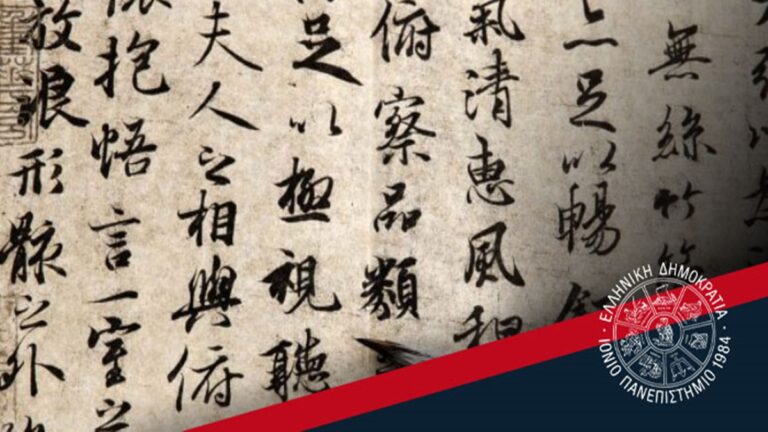 無絲竹管
亦足以暢敘
氣清惠風和
俯察品類
足以極視聽
夫人之相與俯
懷抱悟言一室之
放浪形骸之外
ΕΛΛΗΝΙΚΗ ΔΗΜΟΚΡΑΤΙΑ
ΙΟΝΙΟ ΠΑΝΕΠΙΣΤΗΜΙΟ 1984